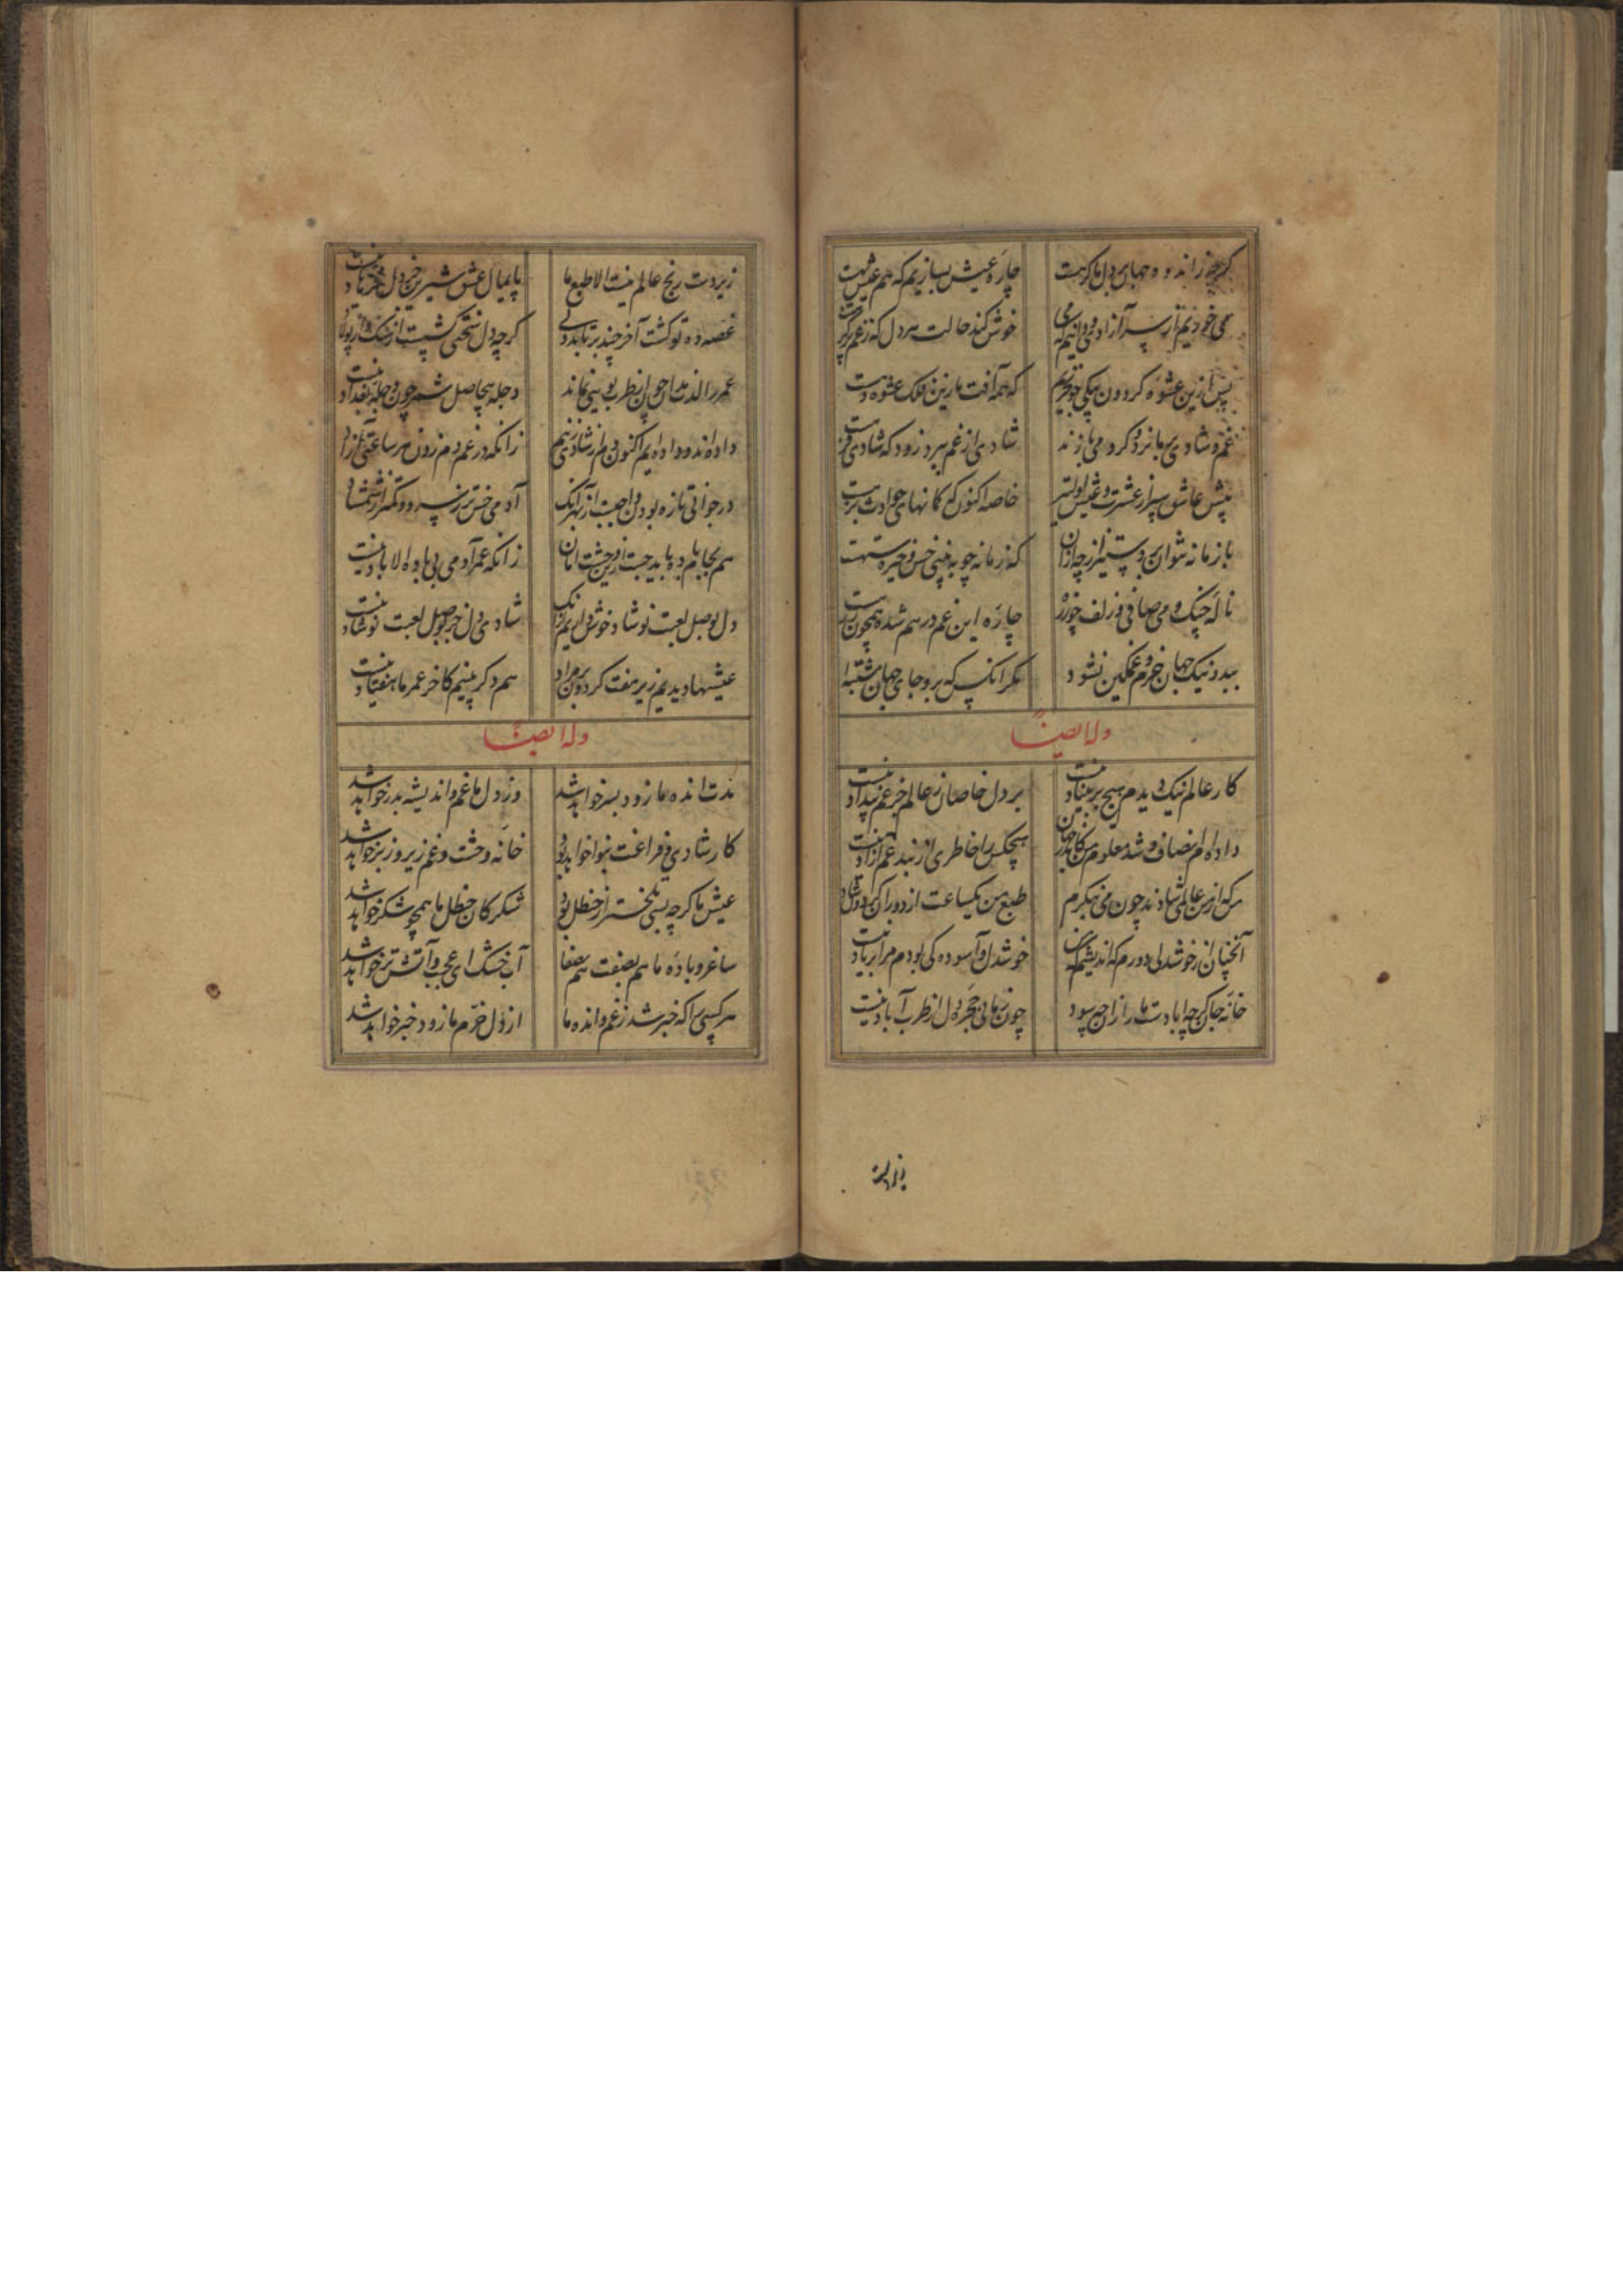 گرچه ز اندوه جهان بر دل ما کرهست چاره عیش بسازیم که هم عیش بهست
می خوریم از سر آزادی و دانیم که می خوش کند حالت هر دل که ز غم
پس ازین عشوه گردون یکی جو نخریم که همه آفت ما زین فلک عشوه دهست
غم و شادی با نرد گرو می بازند شادی از غم ببرد زود که شادی
پیش عاشق سپر از عشرت و عیش اولیتر خاصه اکنون که کمانهای حوادث بزهست
با زمانه نتوان برد ستیز ار چه از آن که زمانه چو ببینی خس و خیره
ناله چنگ و می صافی و زلف چو زره چاره این غم درهم شده همچون زرهست
ببد و نیک جهان خرم و غمگین نشود مگر آنکس که برو جای جهان مشتبه
وله ایضاً
کار عالم نیک دیدم هیچ بر بنیاد نیست بر دل خاصان ز عالم جز غم و بیداد نیست
داده ام انصاف و شد معلوم من کاندر جهان هیچکس را خاطری از بند غم آزاد نیست
هر که از من عالمی شادند چون می بنگرم طبع من یکساعت از دوران گردون شاد نیست
آنچنان از خوشدلی دورم که اندیشم همی خوشدل و آسوده کی بودم مرا بر یاد نیست
خانه جان گرچه آبادست ما را زان چه سود چون زمانی حجره دل از طرب آباد نیست
زیردست
زیردست رنج عالم نیست الا طبع ما پایمال عشق شیرین جز دل فرهاد نیست
غصه ده تو گشت آخر چند برتابد دلی گرچه دل سختی گشست از سنگ و از پولاد
عمر را لذت نماند چون طرب بینی نماند دجله بیحاصل شمر چون دجله بغداد نیست
داده اند و داده ایم اکنون دم از شادی زنیم زانکه در غم دم زدن هر ساعتی از داد
در جوانی تازه بودن واجبست از بهر آنک آدمی خستر ز سرو و کمتر از شمشاد
هم بجام باده باید جست ازین وحشت امان زانکه عمر آدمی بی باده الا باد نیست
دل بوصل لعبت نوشاد خوش داریم از آنک شادی دل جز بوصل لعبت نوشاد نیست
عیشها دیدیم زیر هفت گردون بر مراد هم دگر بینیم کاخر عمر ما هفتاد نیست
وله ایضاً
مدت انده ما زود بسر خواهد شد وز دل ما غم و اندیشه بدر خواهد شد
کار شادی و فراغت بنوا خواهد بود خانه وحشت و غم زیر و زبر خواهد شد
عیش ما گرچه بسی تلختر از حنظل بود شکر کان حنظل ما همچو شکر خواهد شد
ساغر و باده ما هم بصفت هم بصفا آب خشک ای عجب و آتش تر خواهد شد
هر کسی را که خبر شد ز غم و انده ما از دل خرم ما زود خبر خواهد شد